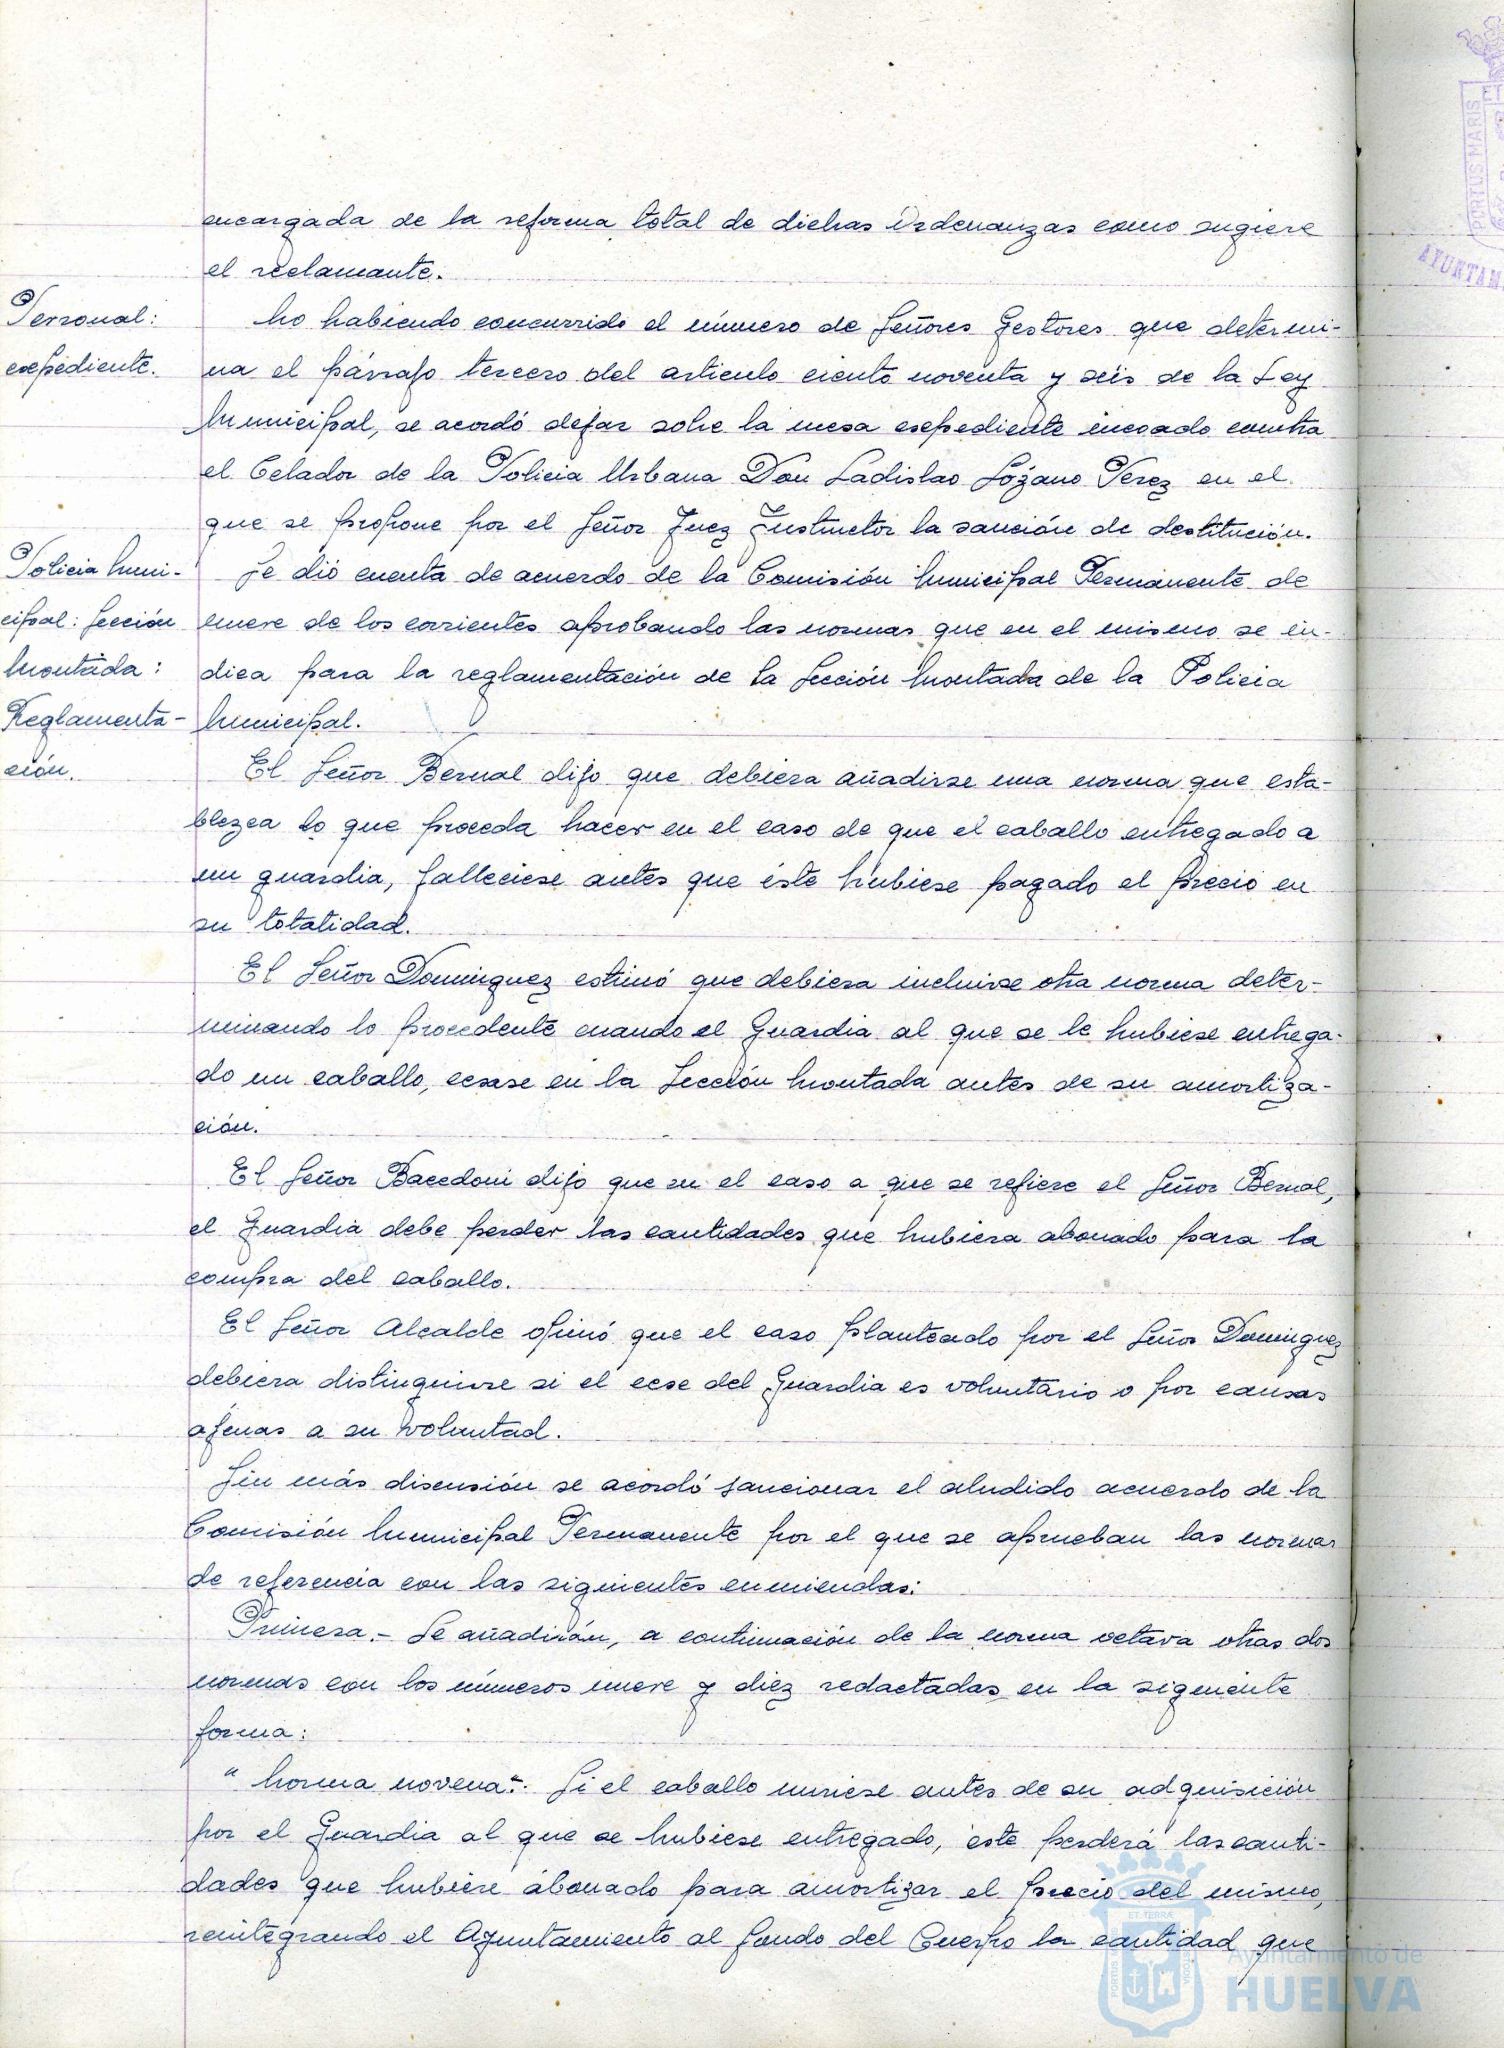 encargada de la reforma total de dichas Ordenanzas como sugiere
el reclamante.
Personal:
expediente.
No habiendo concurrido el número de Señores Gestores que determi-
na el párrafo tercero del articulo ciento noventa y seis de la Ley
Municipal, se acordó dejar sobre la mesa expediente incoado contra
el Celador de la Policia Urbana Don Ladislao Lozano Perez en el
que se propone por el Señor Juez Instructor la sanción de destitución.
Policia Muni-
cipal: Sección
Montada:
Reglamenta-
ción.
Se dió cuenta de acuerdo de la Comisión Municipal Permanente de
nueve de los corrientes aprobando las normas que en el mismo se in-
dica para la reglamentación de la Sección Montada de la Policia
Municipal.
El Señor Bernal dijo que debiera añadirse una norma que esta-
blezca lo que proceda hacer en el caso de que el caballo entregado a
un guardia, falleciese antes que éste hubiese pagado el precio en
su totalidad.
El Señor Dominguez estimó que debiera incluirse otra norma deter-
minando lo procedente cuando el Guardia al que se le hubiese entrega-
do un caballo, cesase en la Sección Montada antes de su amortiza-
ción.
El Señor Bacedoni dijo que en el caso a que se refiere el Señor Bernal,
el Guardia debe perder las cantidades que hubiera abonado para la
compra del caballo.
El Señor Alcalde opinó que el caso planteado por el Señor Dominguez
debiera distinguirse si el cese del Guardia es voluntario o por causas
ajenas a su voluntad.
Sin más discusión se acordó sancionar el aludido acuerdo de la
Comisión Municipal Permanente por el que se aprueban las normas
de referencia con las siguientes enmiendas:
Primera.- Se añadirán, a continuación de la norma octava otras dos
normas con los números nueve y diez redactadas en la siguiente
forma:
"Norma novena".- Si el caballo muriese antes de su adquisición
por el Guardia al que se hubiese entregado, éste perderá las canti-
dades que hubiere abonado para amortizar el precio del mismo,
reintegrando el Ayuntamiento al fondo del Cuerpo la cantidad que
PORTUS MARIS
ET
AYUNTAM
ET TERRÆ
PORTUS
CUSTODIA
Ayuntamiento de
HUELVA